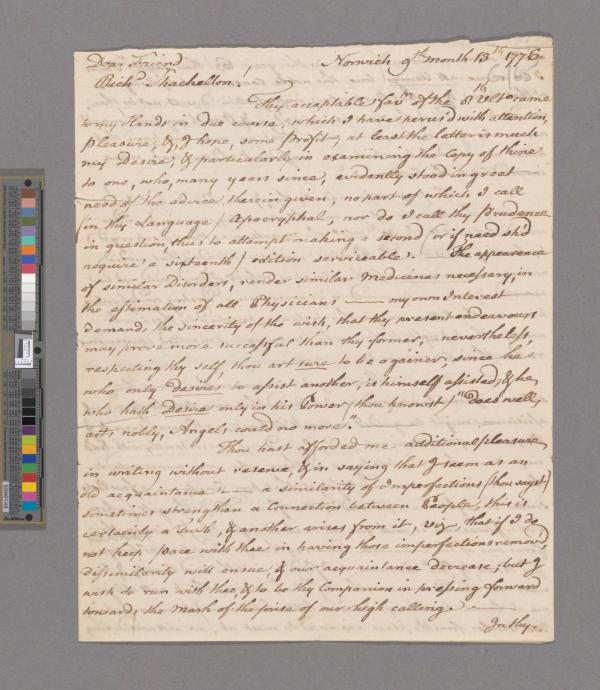 Dear Friend
Norwich 9th month 13th 1776
Richd Shackelton!
Thy acceptable favr. of the 8th Ulto came
to my Hands in due course, which I have perused with attention,
pleasure, &, I hope, some profit, at least the latter is much
my Desire, & particularly in examining the Copy of thine
to one, who, many years since, evidently stood in great
need of the advice therein given, no part of which I call
(in thy Language) Apocryphal, nor do I call thy Prudence
in question, thus to attempt making a second (or if need shd
require a sixteenth) edition serviceable. - The appearance
of similar Disorders, render similar Medicines necessary, in
the estimation of all Physicians — my own Interest
demands the sincerity of the wish, that thy present endeavours
may prove more successful than thy former, nevertheless,
respecting thy self, thou art sure to be a gainer, since he
who only desires to assist another, is himself assisted; & he,
who hath Desire only in his Power (thou knowst) "does well,
acts nobly, Angels could no more".
Thou hast afforded me additional pleasure
in writing without reserve, & in saying that I seem as an
old acquaintance. — a similarity of Imperfections (thou sayst)
sometimes strengthen a Connection between People, this is
certainly a Truth, & another arises from it, viz, that if I do
not keep pace with thee in having those imperfections remov'd,
dissimilarity will ensue, & our acquaintance decrease; but I
wish to run with thee, & to be thy Companion in pressing forward
towards the Mark of the prise of our high calling. —
In thy-